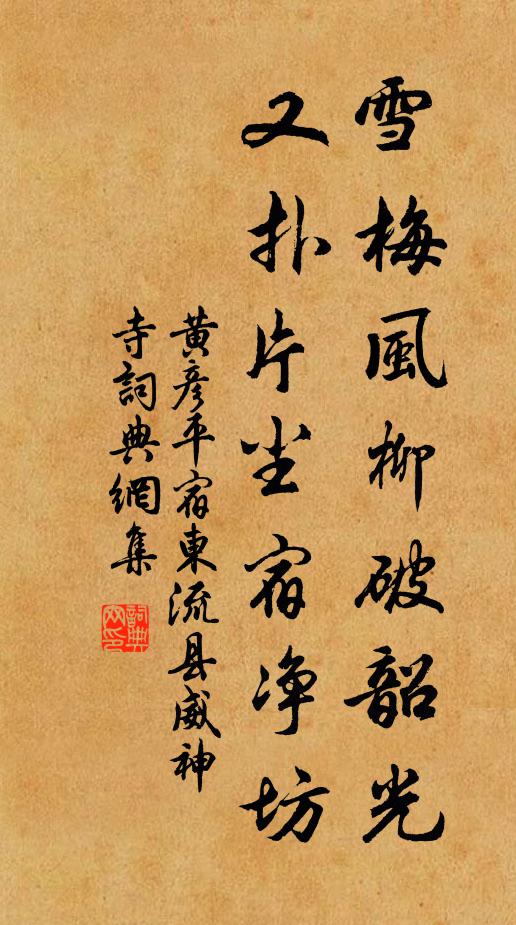 雪梅風柳破韶光
又扑片尘宿净坊
黃彥平宿東流县威神
寺詞典網集
詞典
网印